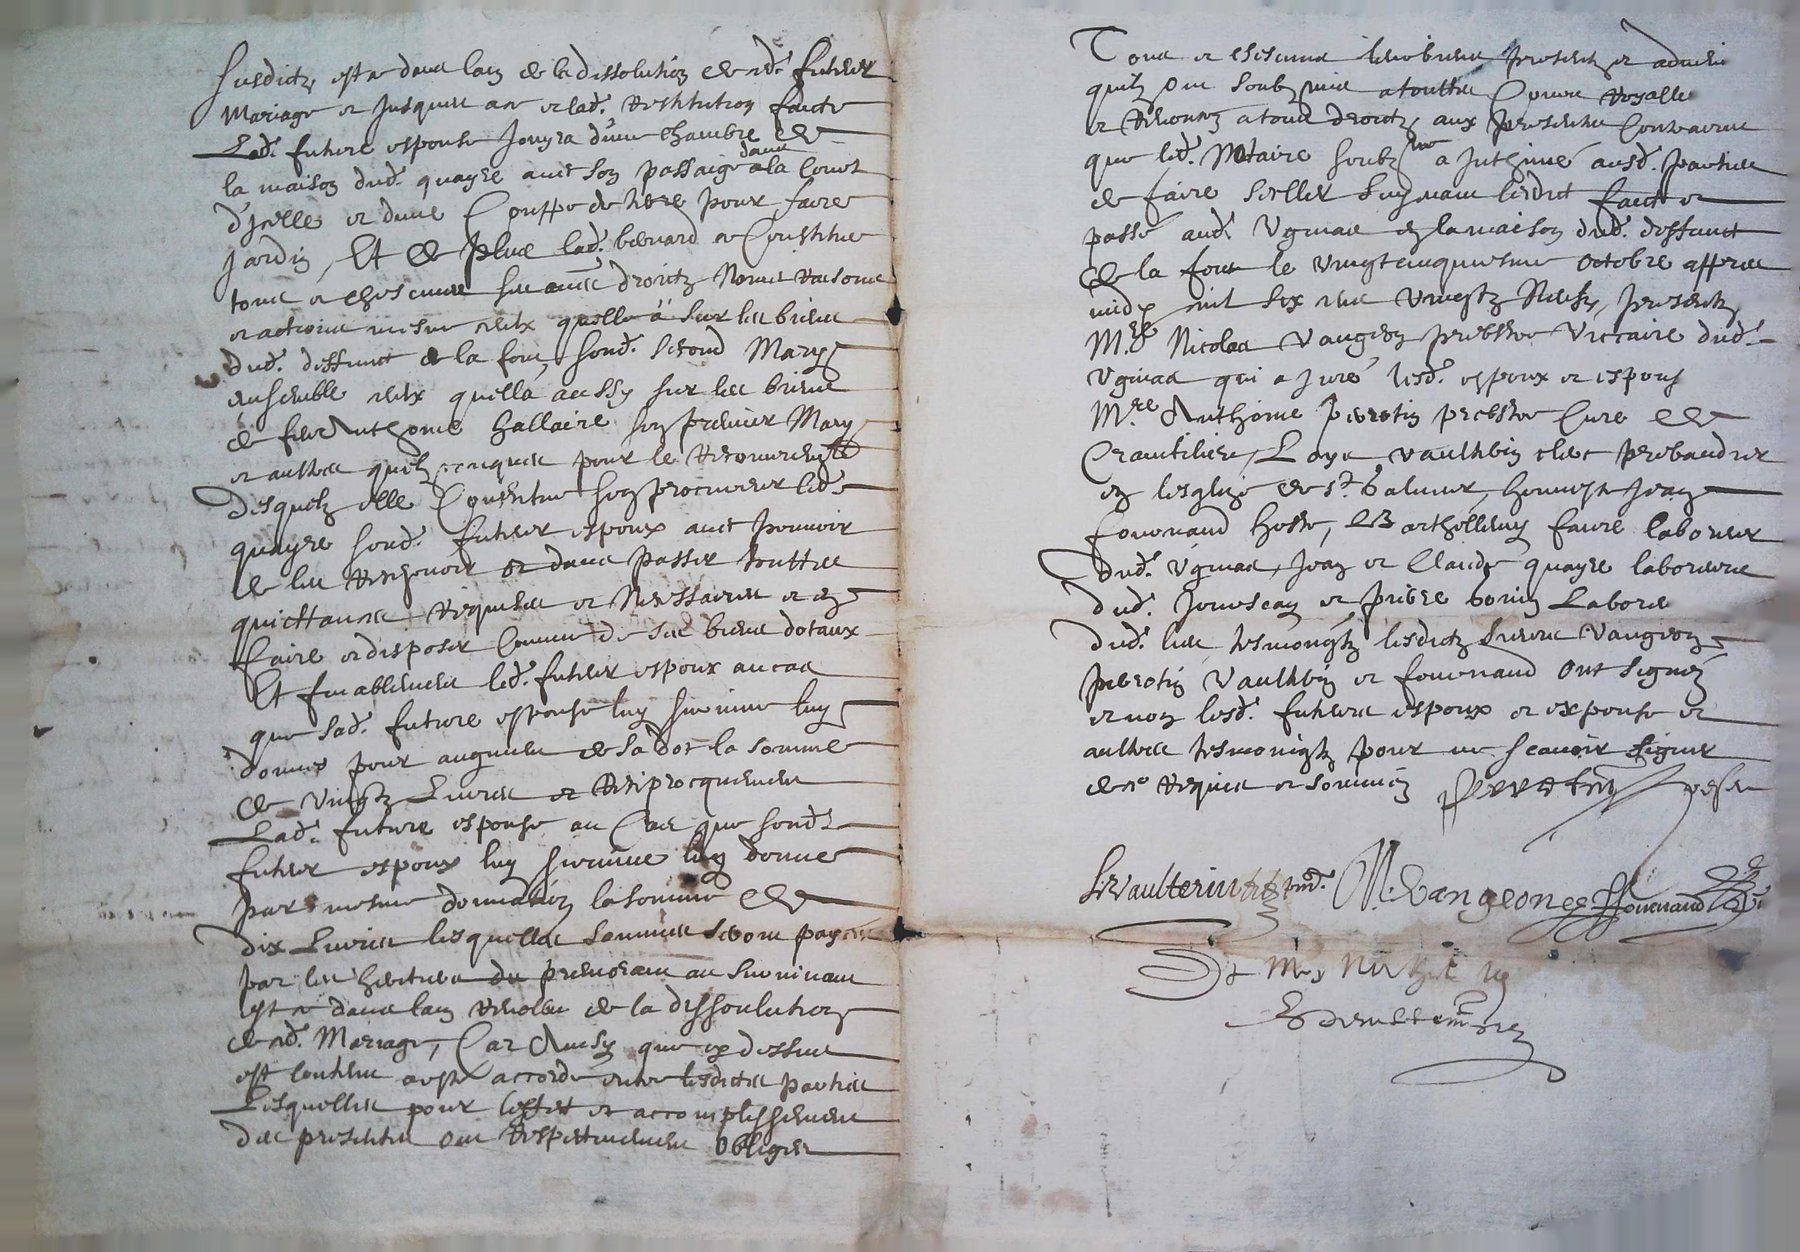 susdictz est a dans lan de la dissolution de cd. futeur
Mariage et Jusques a ce et lad. Restitution faicte
Lad. future espouse Jouyra dune chambre de
la maison dud. quayre avec son passaige dans la Court
d'Jcelle et dune Couppe de terre pour faire
Jardin, Et de plus lad. benard ce Constitue
tous et chescuns ses aultres droictz Noms raisons
et actions mesme ceulx quelle a sur les biens
dud. deffunct de la font, sond. second Mary
ensemble ceulx quella aussy sur les biens
de feu Anthoine hallaire son premier Mary
et aultres quelzconques pour le Recouvrement
desquelz elle Constitue son procureur led.
quayre sond. futeur espoux avec pouvoir
de les Recepvoir et dans passer touttes
quictances Requises et Necessaires et en
faire et disposer Comme de ses biens dotaux
Et finablement led. futeur espoux au cas
que sad. future espouse luy survive luy
donne pour augment de sa dot la somme
de vingtz Livres et Reciprocquement
Lad. future espouse au Cas que sond.
futeur espoux luy survive luy donne
par mesme donnation la somme de
dix Livres lesquelles sommes seront payées
par les heritiers du premorant au survivant
est a dans lan Revolleu de la dissoulution
de cd. Mariage, Car Ainsy que cy dessus
est contenu a este accorde entre lesdictes parties
Lesquelles pour leffect et accomplissement
des presentes ont Respectivement obliges
Tous et chescuns leurs biens presentz et advenir
quilz ont soubzmis a touttes Cours Royalles
et Renoncé a tous droictz aux presentes Contraires
que led. Notaire soubzne a Inthimé ausd. parties
de faire seeller suyvant ledict faict et
passé aud. Ugnias en la maison dud. deffunct
de la font le vingtcinquiesme octobre appres
midy mil six cens vingtz Neufz, presentz
M.re Nicolas Vangeon prebstre viccaire dud.
Ugnias qui a juré lesd. espoux et espouse
M.re Anthoine pierotin prebstre Cure de
Craintilieu, Loys vaultherin clerc prebandier
en lesglize de St. Galmier, honneste Jean
fouenaud hoste, Barthellemy faure laboureur
dud. Ugnias, Jean et Claude quayre laboureurs
dud. Jourseau et pierre bonin Laboureur
dud. lieu tesmoingtz lesdictz sieurs Vangeon
pierotin Vaultherin et fouenaud ont signé
et non lesd. futeurs espoux et espouse et
aultres tesmoingtz pour ne scavoir signer
de ce Requis et sommés Pierotin
L. Vaulterin M. Vangeon fouenaud
Et Moy No.re